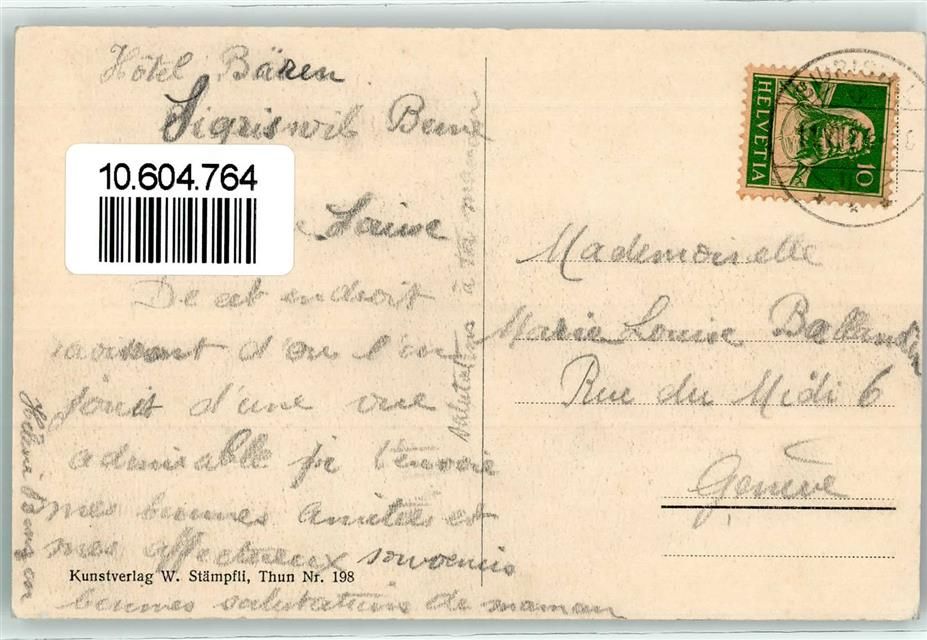 Hôtel Bären
Sigriswil Berne
10.604.764
Louise
De cet endroit
ravissant d'ou l'on
jouit d'une vue
admirable je t'envoie
mes bonnes amitiés et
mes affectueux souvenirs
bonnes salutations de maman
salutations à ta maman
Hélène
Kunstverlag W. Stämpfli, Thun Nr. 198
HELVETIA
10
Mademoiselle
Marie Louise
Rue du Midi 6
Genève